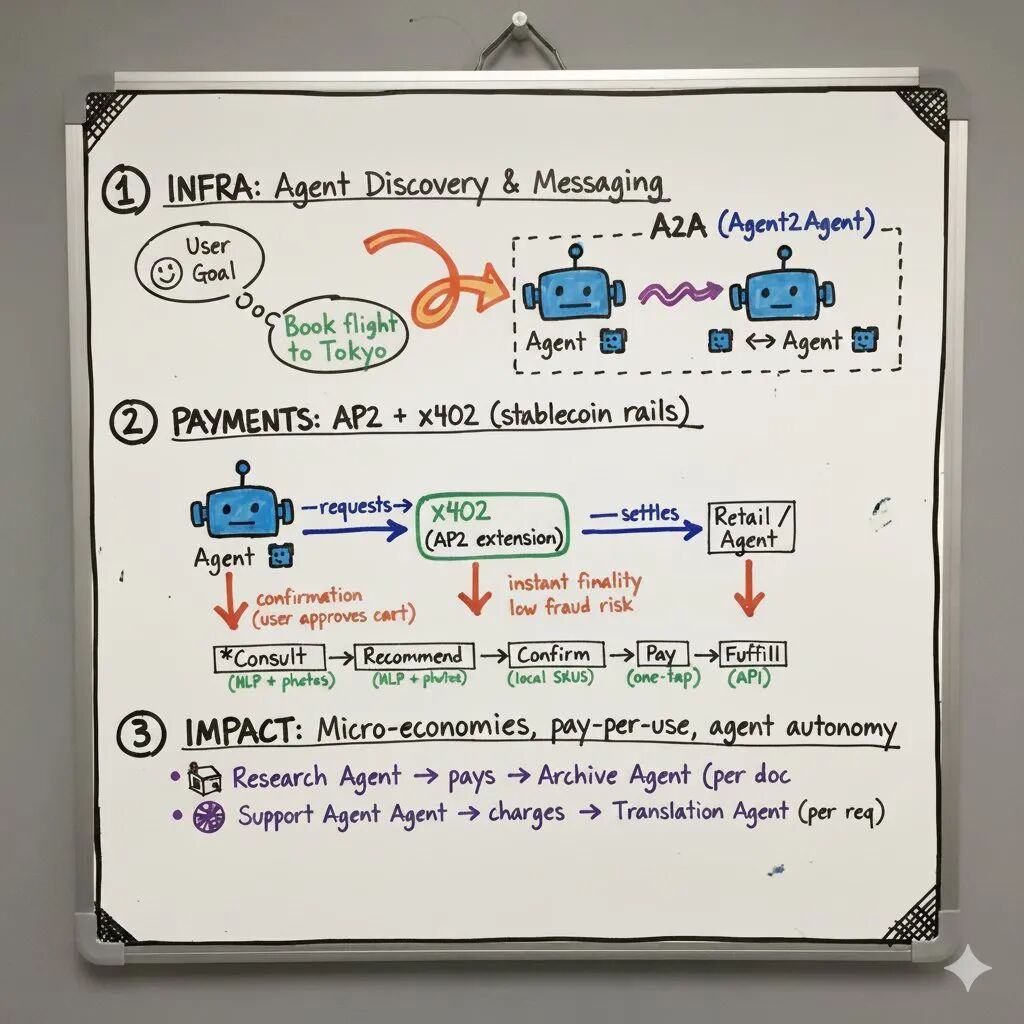 ① INFRA: Agent Discovery & Messaging
User
Goal
Book flight
to Tokyo
A2A (Agent2Agent)
Agent
↔ Agent
② PAYMENTS: AP2 + x402 (stablecoin rails)
Agent
requests→
x402
(AP2 extension)
settles
Retail /
Agent
confirmation
(user approves cart)
instant finality
low fraud risk
*Consult → Recommend → Confirm → Pay → Fuffill
(local SKUS) (one-tap) (API)
③ IMPACT: Micro-economies, pay-per-use, agent autonomy
• Research Agent → pays → Archive Agent (per doc
• Support Agent Agent → charges → Translation Agent (per req)